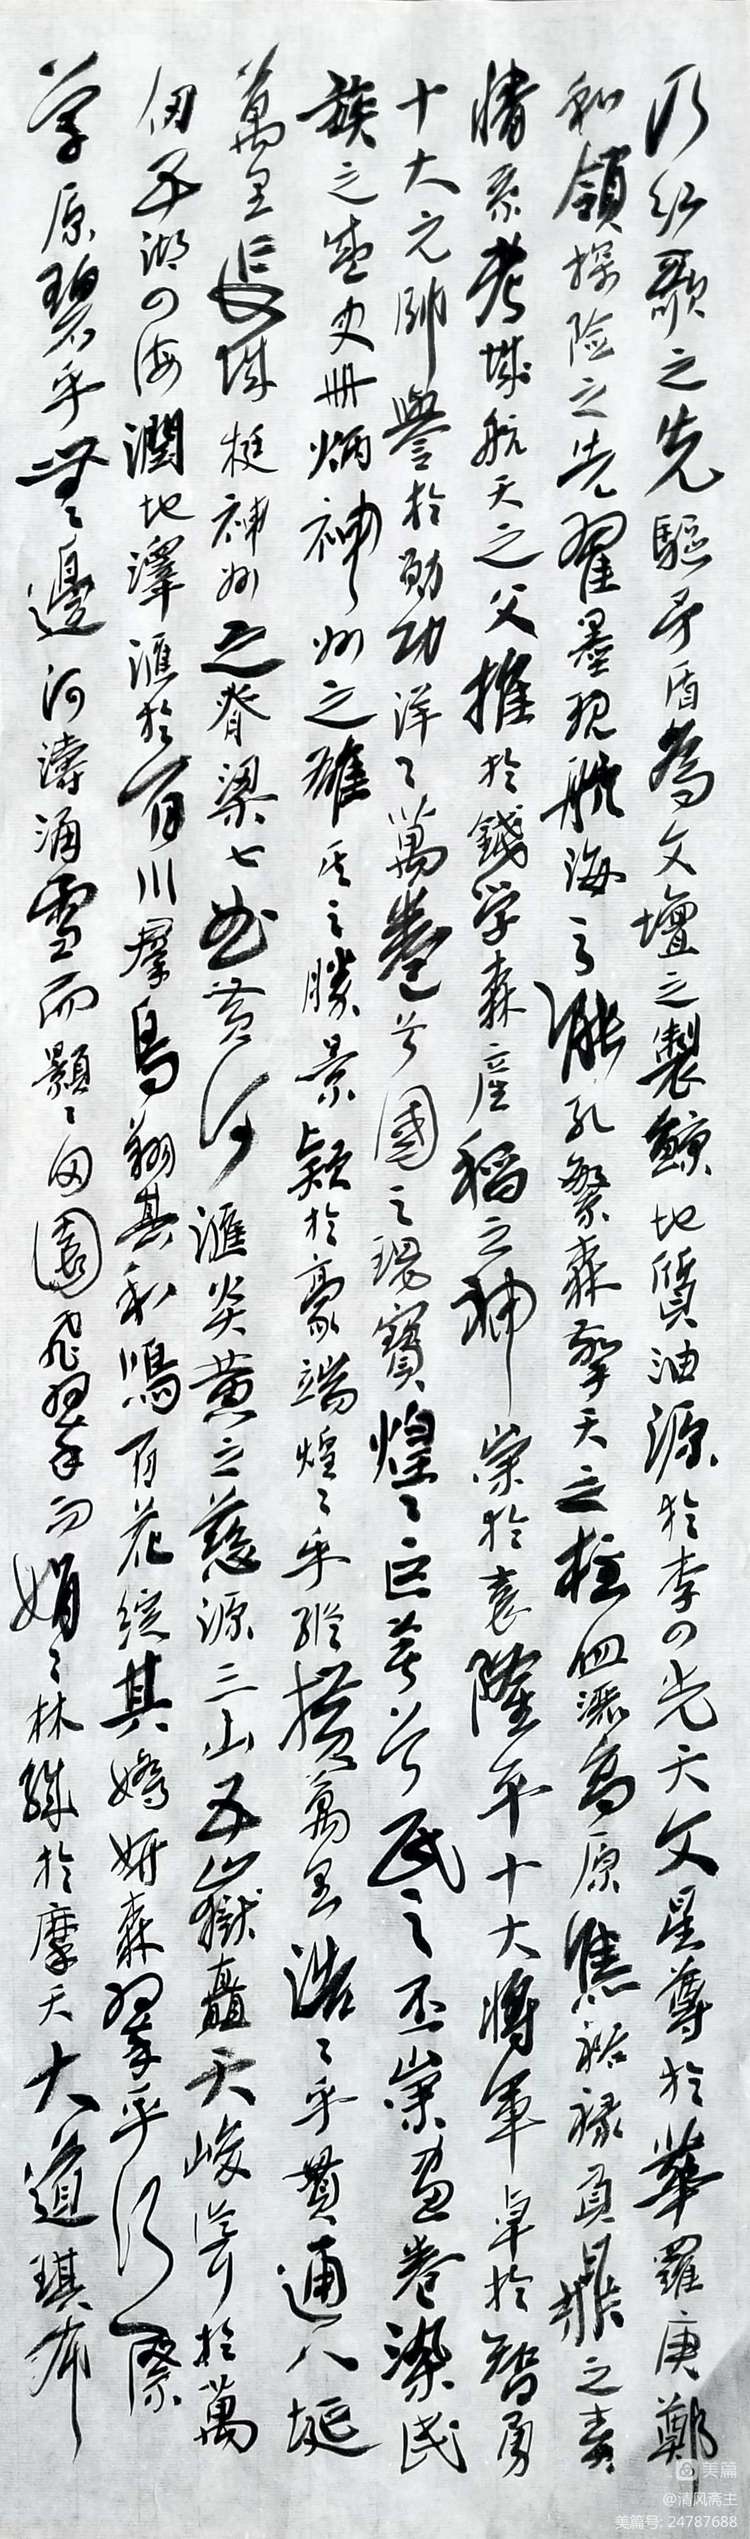 乃红歌之先驅矛盾為文壇之製鯨地質油源於李四光天文星尊於華羅庚鄭
和領探险之先翟墨現航海之能孔繁森擎天之柱血洒高原焦裕禄負鼎之責
情系考城航天之父推於錢学森産稻之神崇於袁隆平十大將軍卓於智勇
十大元帥譽於勋功洋洋萬卷兮國之瑰寶煌煌巨著兮民之丕崇画卷染民
族之盛史册炳神州之雄其之勝景颖於豪端煌煌乎縱横萬里浩浩乎貫通八埏
萬里長城挺神州之脊梁七曲黄河滙炎黄之慈源三山五嶽矗天峻嶺於萬
仞五湖四海潤地澤滙於百川群鳥翔其和鳴百花綻其嬌妍森羣乎行際
草原碧乎無邊河濤涌雪而顥顥田園飛翠而娟娟林立於摩天大道琪布
美篇
@清风斋主
美篇号: 24787688